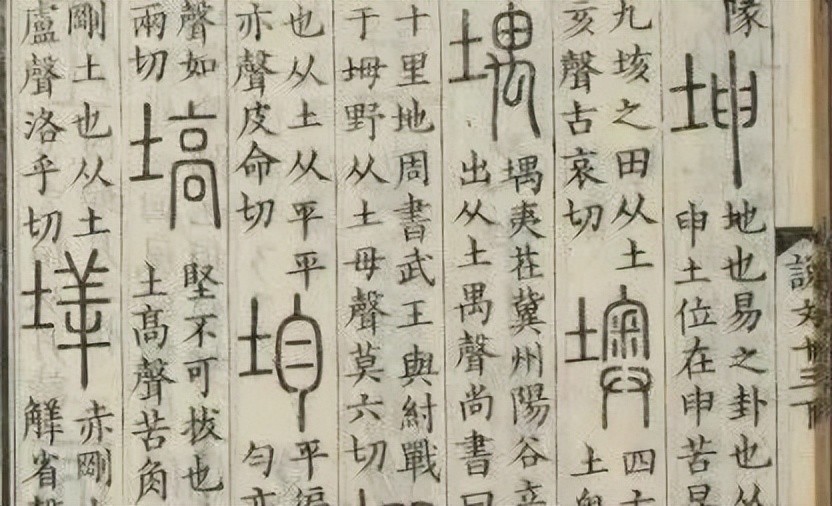 說文十三下
隊
坤
地也易之卦也从
申土位在申苦昆
九垓之田从土
亥聲古哀切
墺
四方
土奧
堣
堣夷在冀州陽谷立
出从土禺聲尚書曰
十里地周書武王與紂戰
于坶野从土母聲莫六切
也从土从平平
亦聲皮命切
均
平徧
勻亦
聲如
兩切
塙
堅不可拔也
土高聲苦角
剛土也从土
盧聲洛乎切
垟
赤剛土
觲省聲